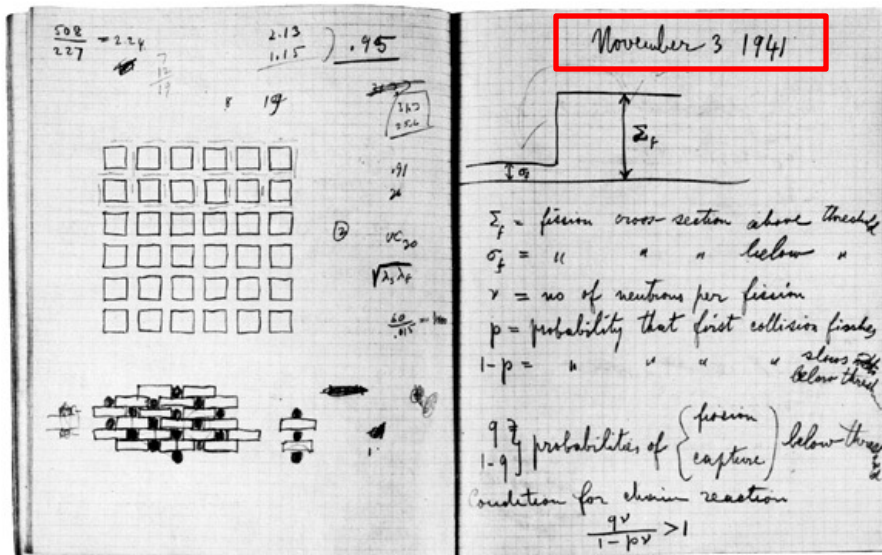 508
227 = 2.24
7
12
19
2.13
1.15
) .95
8 19
.91
26
3
UC20
√λsλf
60
.015 =
November 3 1941
Σf
σf
Σf = fission cross-section above threshold
σf = " " " below "
ν = no of neutrons per fission
p = probability that first collision
1-p = " " " " slows
below
q
1-q } probabilities of { fission
capture } below
Condition for chain reaction
qν
1-pν >1